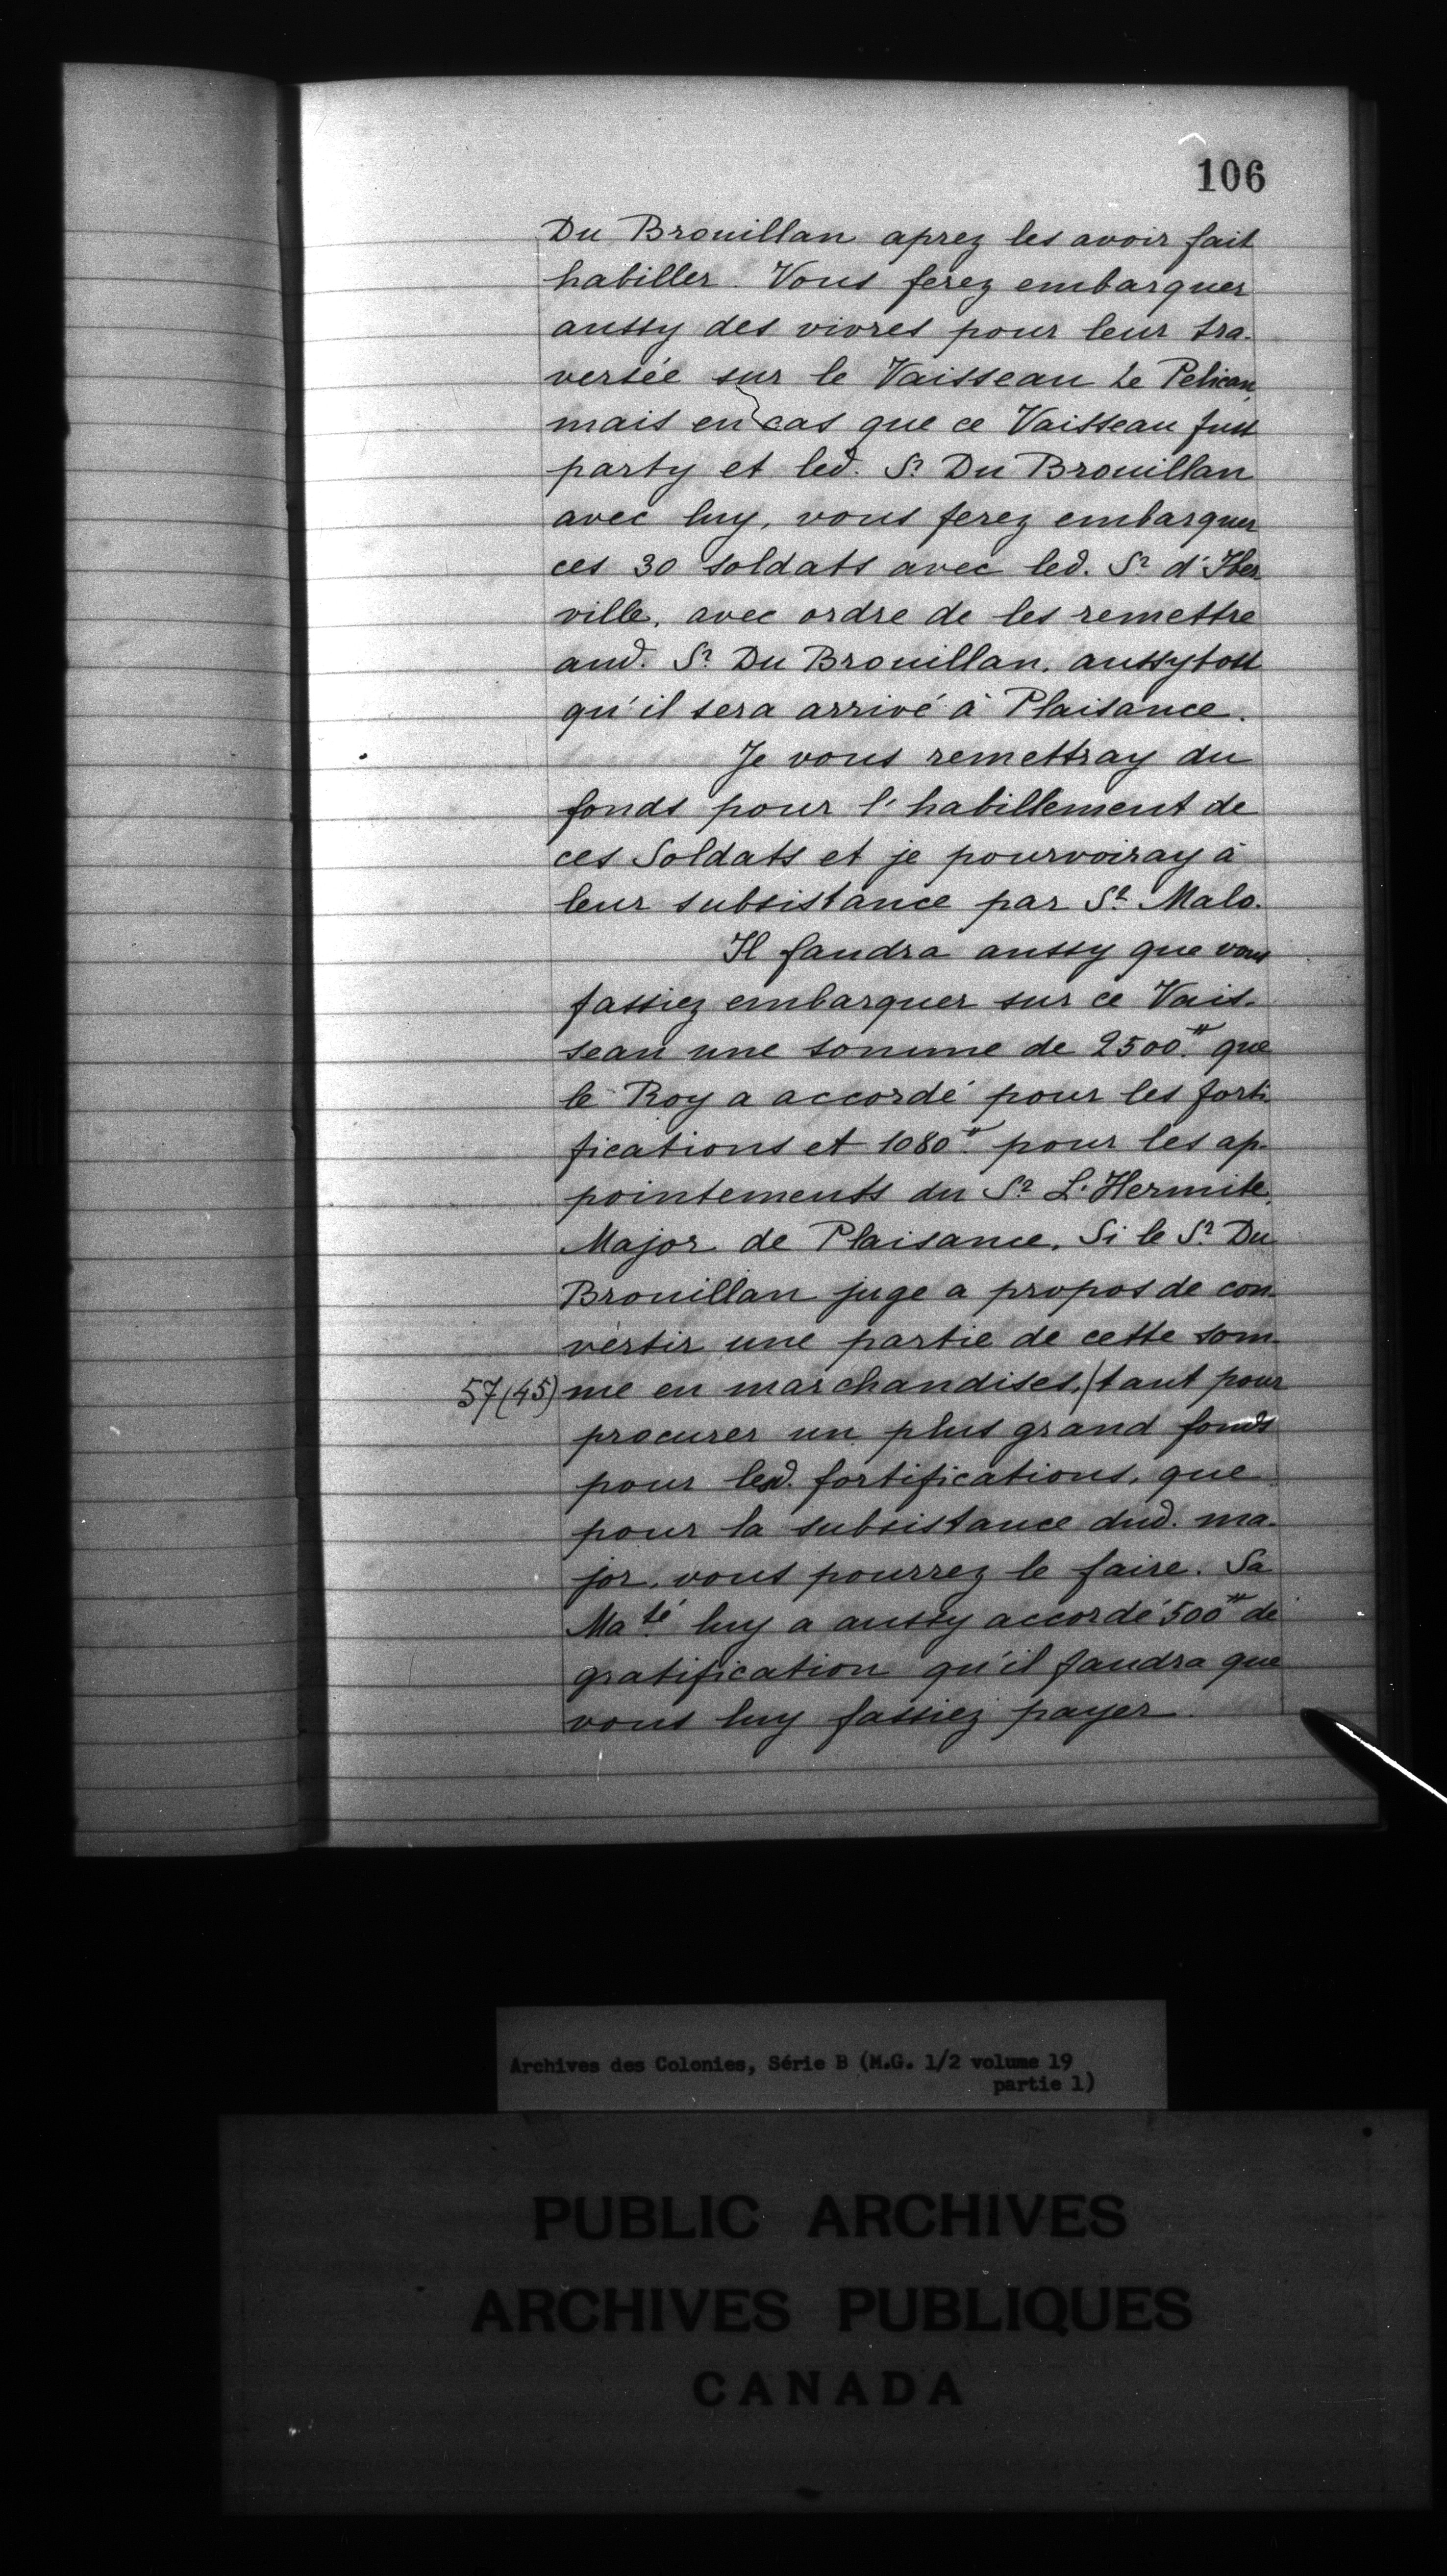 106
Du Brouillan aprez les avoir fait
habiller. Vous ferez embarquer
aussy des vivres pour leur tra-
versée sur le Vaisseau Le Pelican,
mais en cas que ce Vaisseau fust
party et led. Sr Du Brouillan
avec luy, vous ferez embarquer
ces 30 soldats avec led. Sr d'Iber
ville, avec ordre de les remettre
aud. Sr Du Brouillan, aussytost
qu'il sera arrivé à Plaisance.
Je vous remettray du
fonds pour l'habillement de
ces Soldats et je pourvoiray à
leur subsistance par St Malo.
Il faudra aussy que vous
fassiez embarquer sur ce Vais-
seau une somme de 2500.# que
le Roy a accordé pour les forti-
fications et 1080.# pour les ap-
pointements du Sr L'Hermite,
Major de Plaisance. Si le Sr Du
Brouillan juge a propos de con-
vertir une partie de cette som-
57(45) me en marchandises,/tant pour
procurer un plus grand fonds
pour lesd. fortifications, que
pour la subsistance dud. ma-
jor, vous pourrez le faire. Sa
Maté luy a aussy accordé 500# de
gratification qu'il faudra que
vous luy fassiez payer.
Archives des Colonies, Série B (M.G. 1/2 volume 19
partie 1)
PUBLIC ARCHIVES
ARCHIVES PUBLIQUES
CANADA